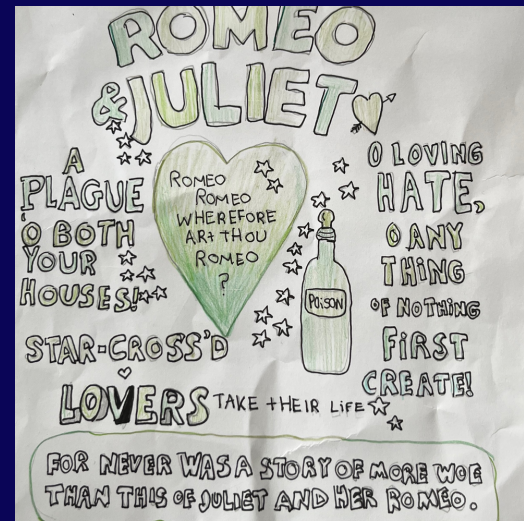 ROMEO
& JULIET
A
PLAGUE
'O BOTH
YOUR
HOUSES!
ROMEO
ROMEO
WHEREFORE
ART THOU
ROMEO
?
POISON
O LOVING
HATE,
O ANY
THING
OF NOTHING
FIRST
CREATE!
STAR-CROSS'D
LOVERS TAKE THEIR LIFE
FOR NEVER WAS A STORY OF MORE WOE
THAN THIS OF JULIET AND HER ROMEO.